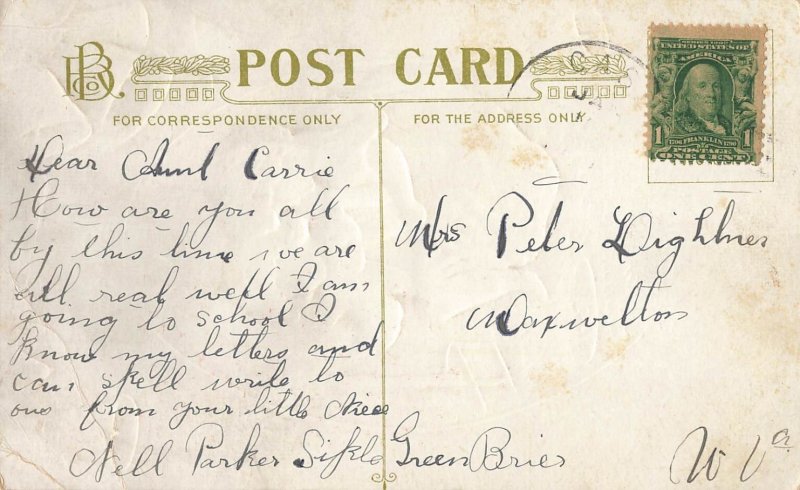 POST CARD
FOR CORRESPONDENCE ONLY
FOR THE ADDRESS ONLY
UNITED STATES OF
AMERICA
1706 FRANKLIN 1790
POSTAGE
1
ONE CENT
Dear Aunt Carrie
How are you all
by this time we are
all real well I am
going to school I
know my letters and
can spell write to
ous from your little Niece
Nell Parker
Mrs Peter Lightner
Maxwelton
Green Brier
W Va